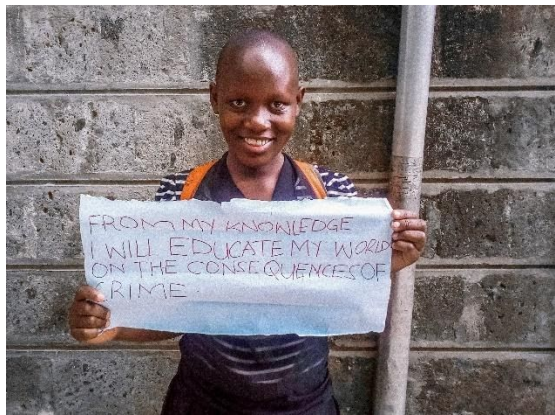 FROM MY KNOWLEDGE
I WILL EDUCATE MY WORLD
ON THE CONSEQUENCES OF
CRIME.